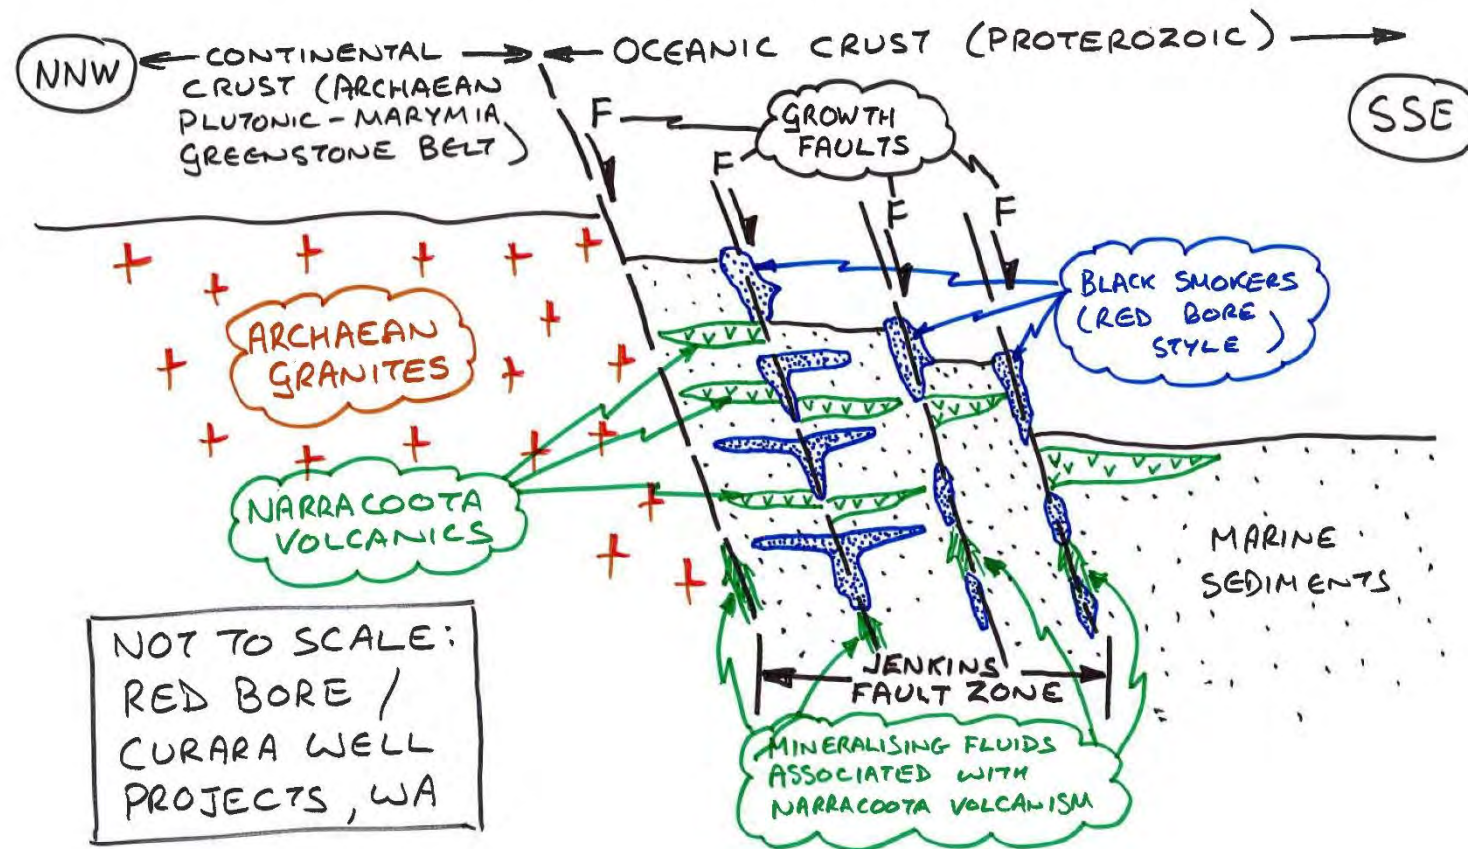 NNW
CONTINENTAL
CRUST (ARCHAEAN
PLUTONIC-MARYMIA
GREENSTONE BELT)
OCEANIC CRUST (PROTEROZOIC)
SSE
F
GROWTH
FAULTS
F
F
F
BLACK SMOKERS
(RED BORE
STYLE)
ARCHAEAN
GRANITES
NARRACOOTA
VOLCANICS
MARINE
SEDIMENTS
NOT TO SCALE:
RED BORE /
CURARA WELL
PROJECTS, WA
JENKINS
FAULT ZONE
MINERALISING FLUIDS
ASSOCIATED WITH
NARRACOOTA VOLCANISM